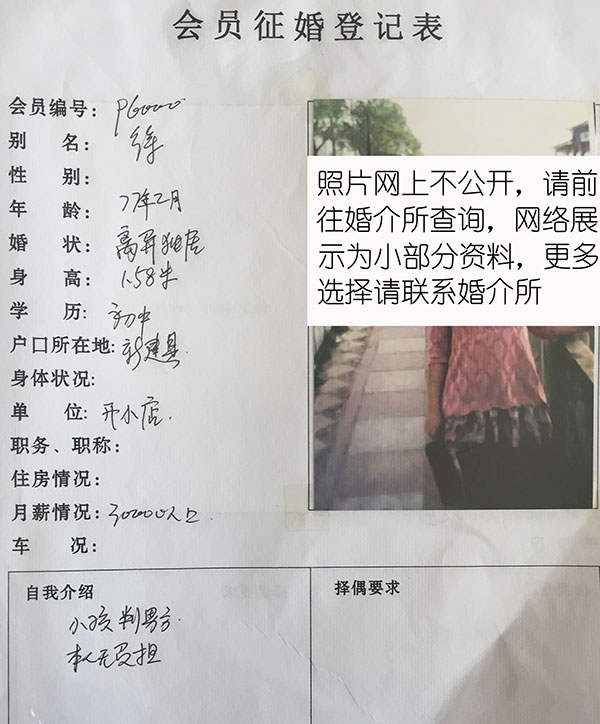 会员征婚登记表
会员编号: P6000
别 名: 徐
性 别:
年 龄: 77年二月
婚 状: 离异独居
身 高: 1.58米
学 历: 初中
户口所在地: 新建县
身体状况:
单 位: 开小店.
职务、职称:
住房情况:
月薪情况:
车 况:
照片网上不公开，请前
往婚介所查询，网络展
示为小部分资料，更多
选择请联系婚介所
自我介绍
小孩判男方.
本人无负担
择偶要求